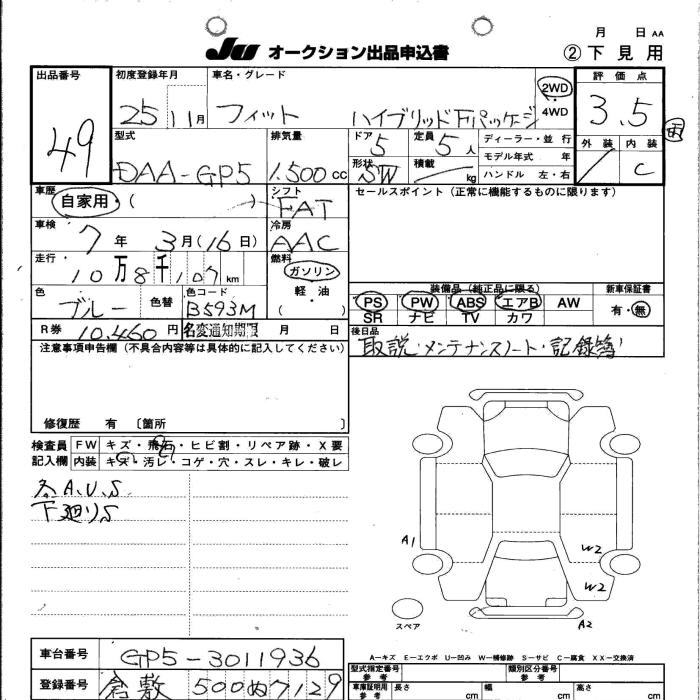 月 日 AA
JU オークション出品申込書 ②下見用
出品番号 49
初度登録年月 25 11月
車名・グレード フィット ハイブリッド Fパッケージ
2WD
4WD
評価点 3.5
外装 内装 C
型式 DAA-GP5
排気量 1.500cc
ドア 5
定員 5人
形状 5W
積載 kg
ディーラー・並行
モデル年式 年
ハンドル 左・右
車歴 自家用・( )
シフト FAT
セールスポイント(正常に機能するものに限ります)
車検 7年 3月(16日)
冷房 AAC
走行 10万8千107km
燃料 ガソリン
軽・油
( )
色 ブルー 色替
色コード B593M
装備品(純正品に限る)
新車保証書
PS PW ABS エアB AW 有・無
SR ナビ TV カワ
R券 10.460円 名変通知期限 月 日
後日品
取説・メンテナンスノート・記録簿
注意事項申告欄(不具合内容等は具体的に記入してください)
修復歴 有 〔箇所 〕
検査員 記入欄
FW キズ・飛石・ヒビ割・リペア跡・X要
内装 キズ・汚レ・コゲ・穴・スレ・キレ・破レ
各A.U.S
下廻りS
A1
W2
W2
A2
スペア
A―キズ E―エクボ U―凹み W―補修跡 S―サビ C―腐食 XX―交換済
車台番号 GP5-3011936
登録番号 倉敷 500ぬ7129
型式指定番号 参考
類別区分番号 参考
車庫証明用 参考 長さ cm 幅 cm 高さ cm